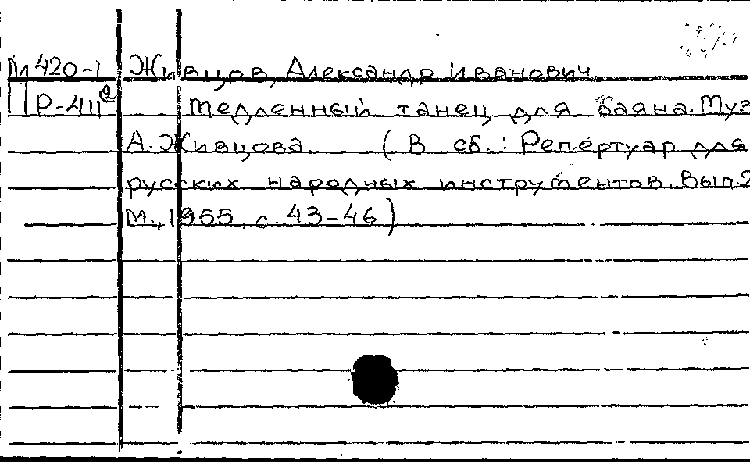 М 420-1 Живцов, Александр Иванович
Р-411 Медленный танец для баяна. Муз
А. Живцова. (В сб.: Репертуар для
русских народных инструментов. Вып.2
М., 1955, с. 43-46)